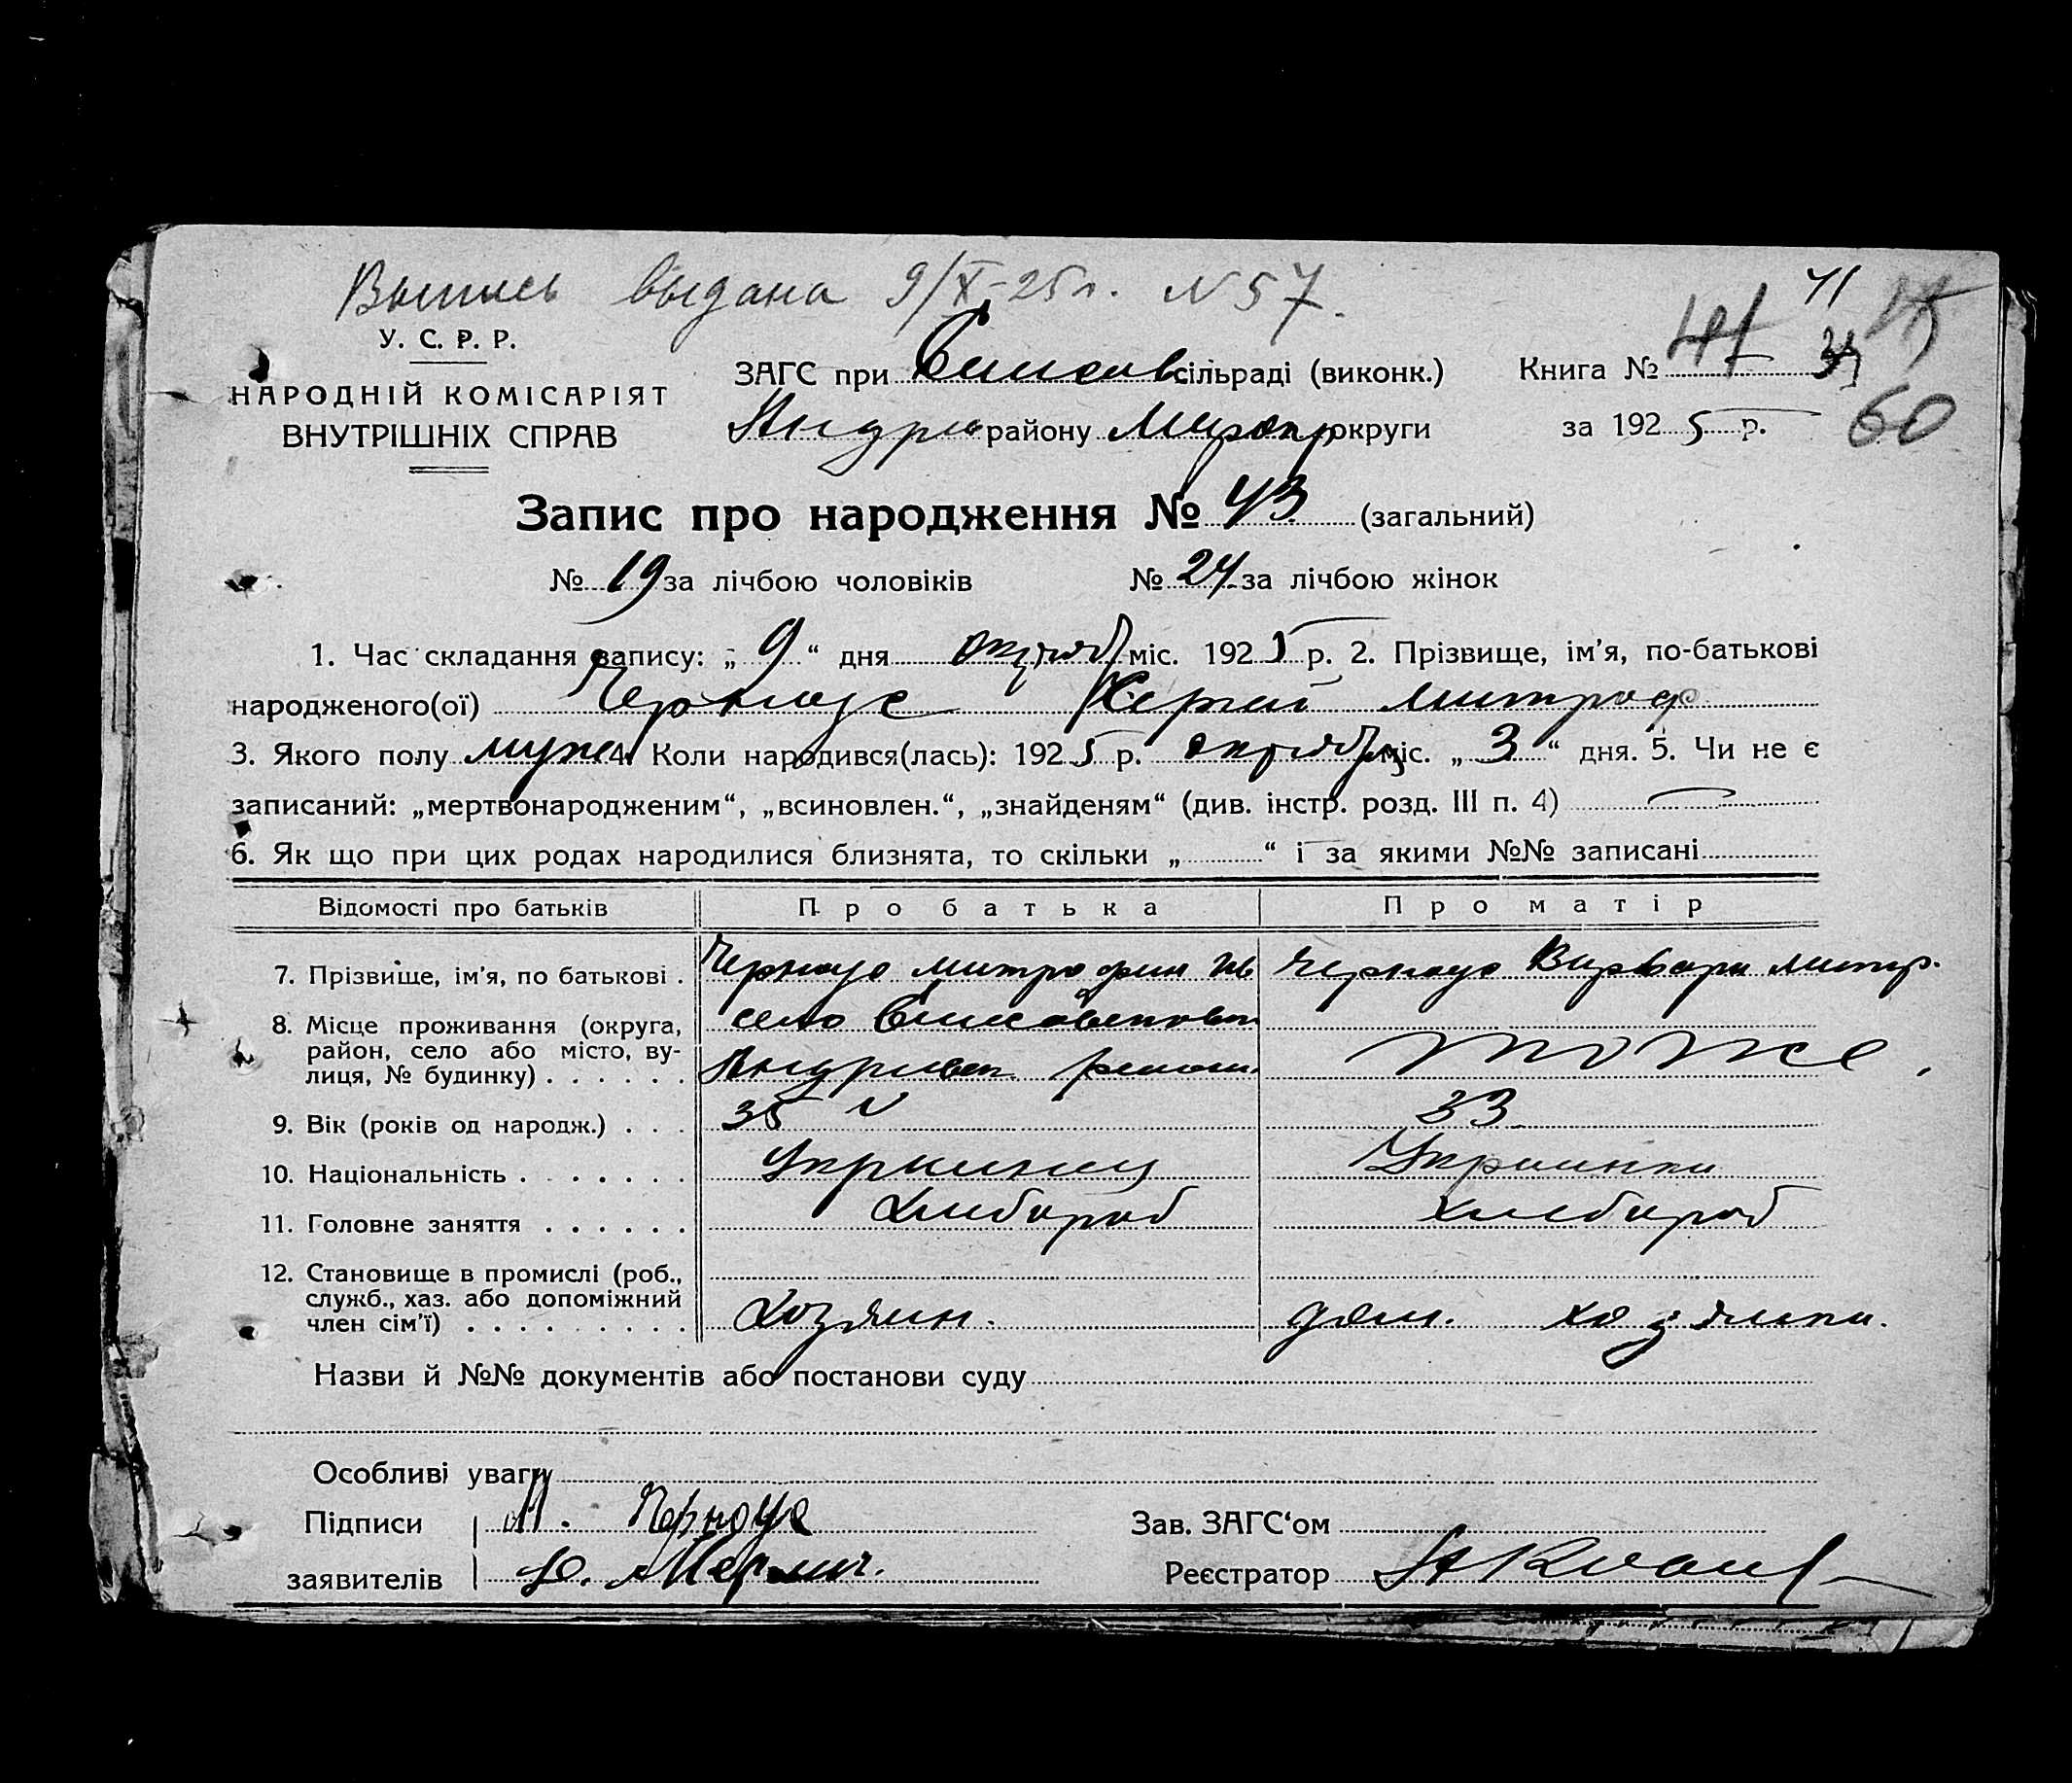 Выпись выдана 9/X-25г. N 57.
У. С. Р. Р.
НАРОДНІЙ КОМІСАРІЯТ
ВНУТРІШНІХ СПРАВ
ЗАГС при Елисав сільраді (виконк.)
Андр району округи
Книга № 41
за 1925 р.
60
Запис про народження № 43 (загальний)
№ 19 за лічбою чоловіків № 24 за лічбою жінок
1. Час складання запису: „ 9 “ дня октяб міс. 1925 р. 2. Прізвище, ім’я, по-батькові
народженого(ої) Черноус Сергей Митроф
3. Якого полу муж 4. Коли народився(лась): 1925 р. октяб міс. „ 3 “ дня. 5. Чи не є
записаний: „мертвонародженим“, „всиновлен.“, „знайденям“ (див. інстр. розд. III п. 4)
6. Як що при цих родах народилися близнята, то скільки „ “ і за якими №№ записані
Відомості про батьків Про батька Про матір
7. Прізвище, ім’я, по батькові . Черноус Митрофан Черноус Варвара Митр.
8. Місце проживання (округа, село
район, село або місто, ву-
лиця, № будинку) . . . . . . Андриевск. тоже
9. Вік (років од народж.) . . . 35 33
10. Національність . . . . . . . Украинец Украинка
11. Головне заняття . . . . . . Хлебороб хлебороб
12. Становище в промислі (роб.,
служб., хаз. або допоміжний
член сім’ї) . . . . . . . . . Хозяин. дом. хозяйка.
Назви й №№ документів або постанови суду
Особливі уваги
Підписи М. Черноус Зав. ЗАГС‘ом
заявителів Реєстратор